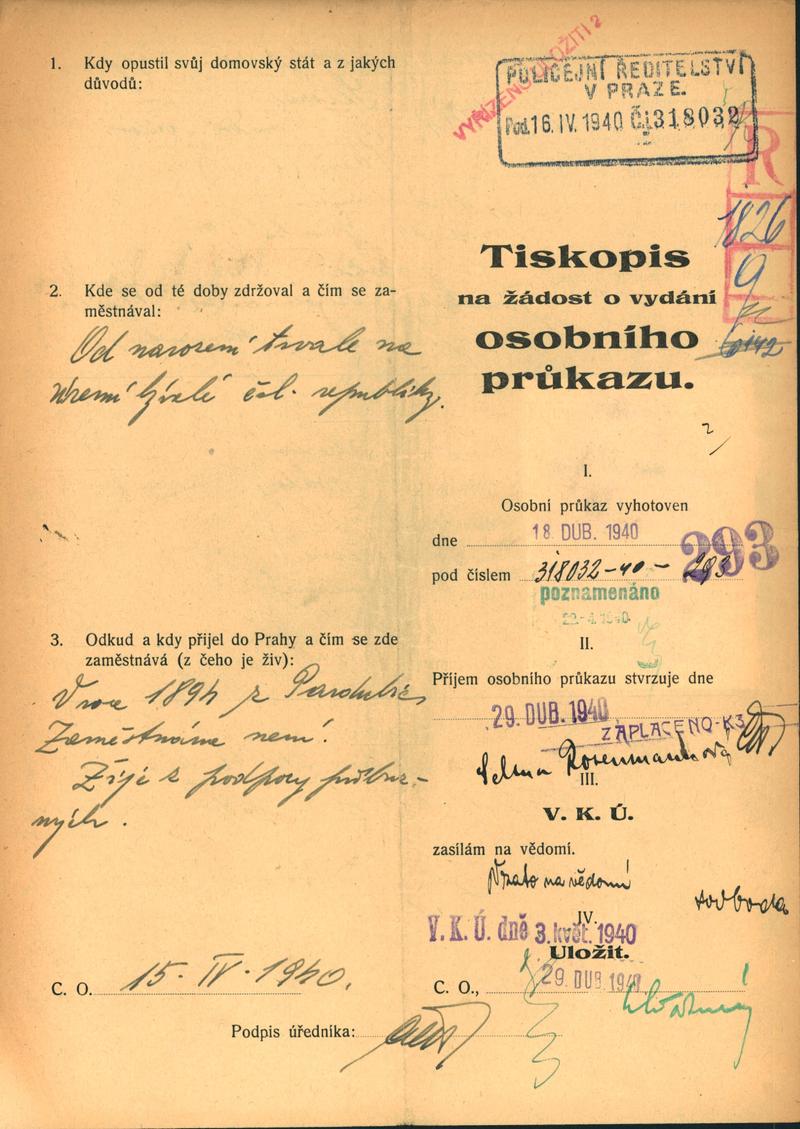 1. Kdy opustil svůj domovský stát a z jakých
důvodů:
2. Kde se od té doby zdržoval a čím se za-
městnával:
Od narození trvale na
území bývalé čsl. republiky.
3. Odkud a kdy přijel do Prahy a čím se zde
zaměstnává (z čeho je živ):
V roce 1894 z Pardubic
Zaměstnána není.
Žije z podpory příbuz-
ných.
C. O. 15. IV. 1940.
Podpis úředníka:
VYŘÍZENO ULOŽITI 2
POLICEJNÍ ŘEDITELSTVÍ
V PRAZE.
Pod. 16. IV. 1940 Č. 318032
R
1826
9
Tiskopis
na žádost o vydání
osobního
průkazu.
I.
Osobní průkaz vyhotoven
dne 18. DUB. 1940
293
pod číslem 318032-40-293
poznamenáno
22.-4. 1940
II.
Příjem osobního průkazu stvrzuje dne
29. DUB. 1940
ZAPLACENO-K3
Selma Rosenmannová
III.
V. K. Ú.
zasílám na vědomí.
Vzato na vědomí
svoboda
IV.
V. K. Ú. dně 3. květ. 1940
Uložit.
C. O., 29 DUB 1940